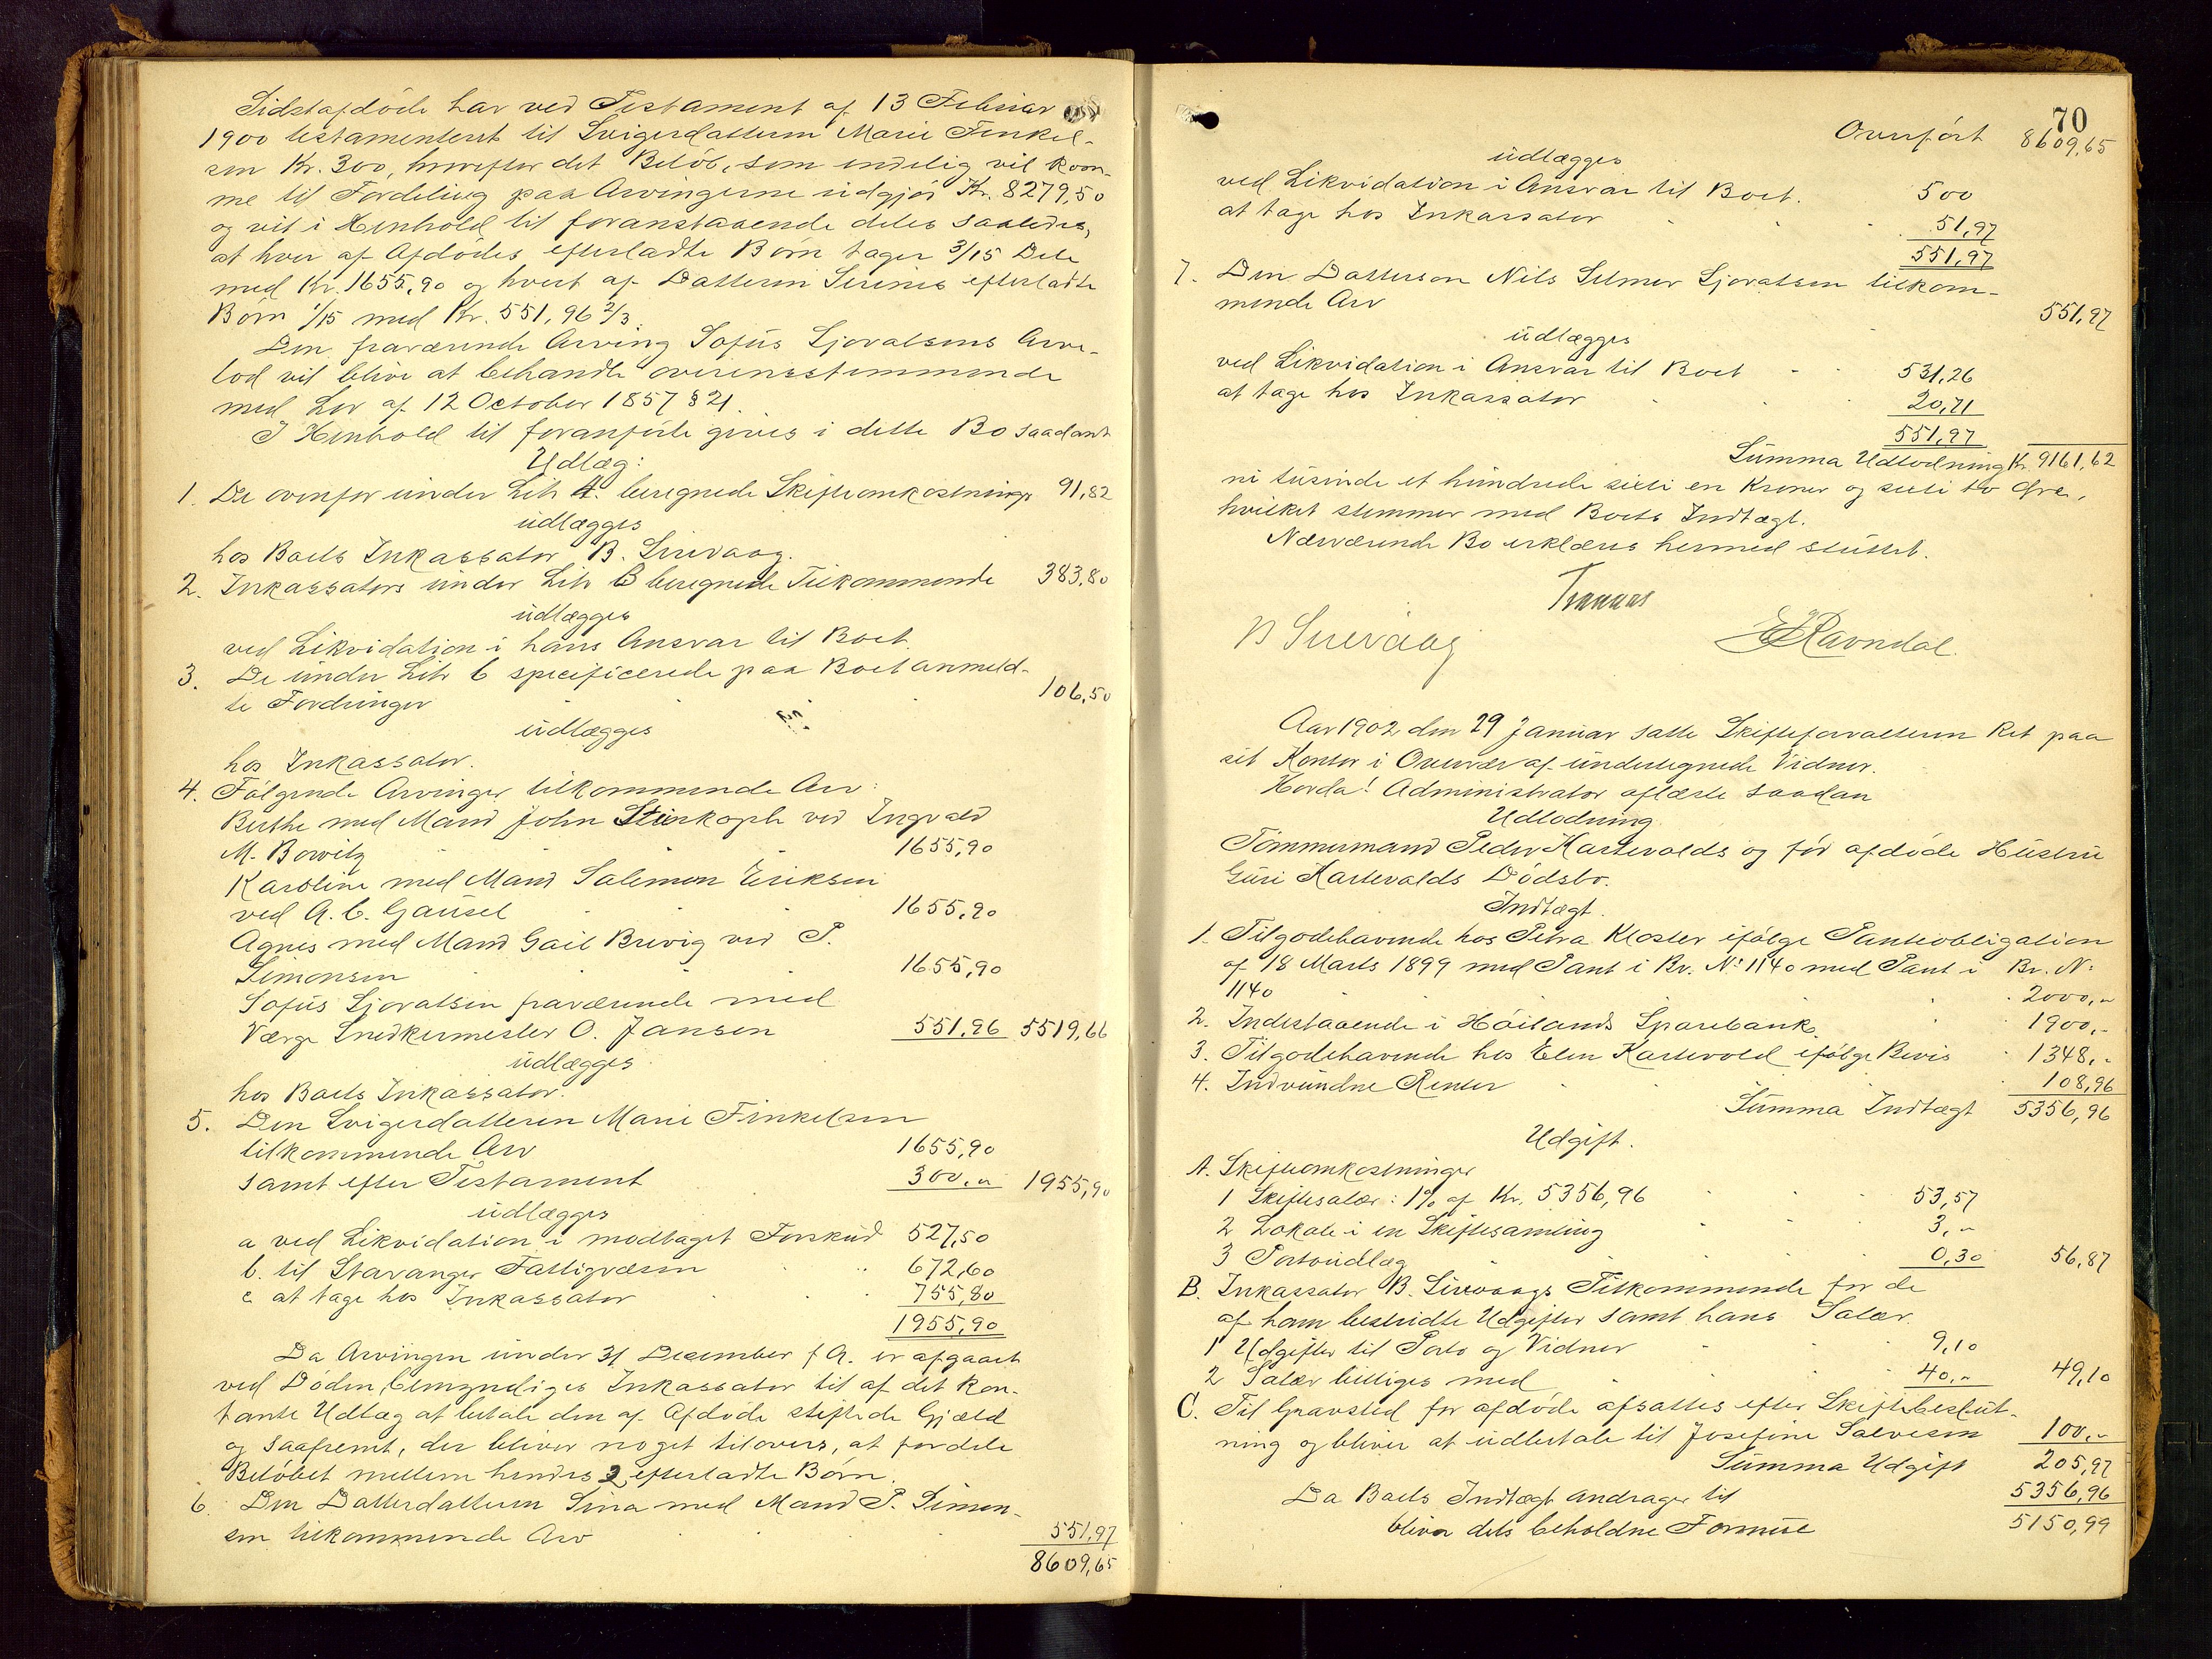 Sidstafdöde har ved Testament af 13 Februar
1900 testamenteret til Svigerdatteren Marie Finkel-
sen Kr. 300, hvorefter det Belöb, som endelig vil kom-
me til Fordeling paa Arvingerne udgjör Kr. 8279,50
og vil i Henhold til foranstaaende deles saaledes,
at hver af Afdödes efterladte Börn tager 3/15 Dele
med Kr. 1655,90 og hvert af Datteren Serines efterladte
Börn 1/15 med Kr. 551,96 2/3.
Den fraværende Arving Sofus Sjovalsens Arve-
lod vil blive at behandle overensstemmende
med Lov af 12 October 1857 § 21.
I Henhold til foranförte gives i dette Bo saadant
Udlæg:
1. De ovenfor under Litr A. beregnede Skifteomkostninger 91,82
udlægges
hos Boets Inkassator B. Sirevaag.
2. Inkassators under Litr B beregnede Tilkommende 383,80
udlægges
ved Likvidation i hans Ansvar til Boet.
3. De under Litr C specificerede paa Boet anmeld-
te Fordringer 106,50
udlægges
hos Inkassator.
4. Fölgende Arvinger tilkommende Arv:
Berthe med Mand John Stenkople ved Ingvald
M. Bowitz 1655,90
Karoline med Mand Salemon Eriksen
ved A. C. Gausel 1655,90
Agnes med Mand Gail Brevig ved P.
Simonsen 1655,90
Sofus Sjovalsen fraværende med
Værge Snedkermester O. Jansen 551,96 5519,66
udlægges
hos Boets Inkassator.
5. Den Svigerdatteren Marie Finkelsen
tilkommende Arv 1655,90
samt efter Testament 300,„ 1955,90
udlægges
a ved Likvidation i modtaget Forskud 527,50
b. til Stavanger Fattigvæsen 672,60
c at tage hos Inkassator 755,80
1955,90
Da Arvingen under 31 December f A. er afgaaet
ved Döden, bemyndiges Inkassator til af det kon-
tante Udlæg at betale den af Afdöde stiftede Gjæld
og saafremt, der bliver noget tilovers, at fordele
Belöbet mellem hendes 2 efterladte Börn.
6. Den Datterdatteren Sina med Mand P. Simon-
sen tilkommende Arv 551,97
8609,65
70
Overfört 8609,65
udlægges
ved Likvidation i Ansvar til Boet. 500
at tage hos Inkassator 51,97
551,97
7. Den Dattersön Nils Selmer Sjovalsen tilkom-
mende Arv 551,97
udlægges
ved Likvidation i Ansvar til Boet 531,26
at tage hos Inkassator 20,71
551,97
Summa Udlodning Kr. 9161,62
ni tusinde et hundrede sexti en Kroner og sexti to Öre,
hvilket stemmer med Boets Indtægt.
Nærværende Bo erklæres hermed sluttet.
B Sirevaag
E Ravndal.
Aar 1902 den 29 Januar satte Skifteforvalteren Ret paa
sit Kontor i Overvær af undertegnede Vidner.
Hvorda! Administrator aflæste saadan
Udlodning
Tömmermand Peder Kartevolds og för afdöde Hustru
Guri Kartevolds Dödsbo.
Indtægt.
1. Tilgodehavende hos Petra Kloster ifölge Panteobligation
af 18 Marts 1899 med Pant i Br. No 1140 med Pant i Br. No
1140 2000,„
2. Indestaaende i Höilands Sparebank 1900,„
3. Tilgodehavende hos Elen Kartevold ifölge Bevis 1348,„
4. Indvundne Renter 108,96
Summa Indtægt 5356,96
Udgift.
A. Skifteomkostninger
1 Skiftesalær: 1% af Kr. 5356,96 53,57
2 Lokale i en Skiftesamling 3,„
3 Portoudlæg 0,30 56,87
B. Inkassator B. Sirevaags Tilkommende for de
af ham bestridte Udgifter samt hans Salær.
1 Udgifter til Porto og Vidner 9,10
2 Salær billiges med 40,„ 49,10
C. Til Gravsted for afdöde afsattes efter Skiftebeslut-
ning og bliver at udbetale til Josefine Salvesen 100,„
Summa Udgift 205,97
Da Boets Indtægt andrager til 5356,96
bliver dets beholdne Formue 5150,99